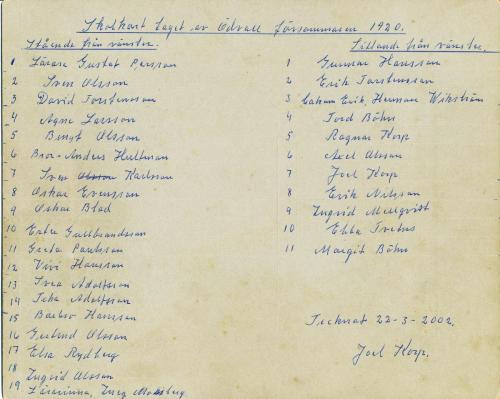 Skolkort taget av Ödvall försammasen 1920.
Stående från vänster.
1 Lärare Gustaf Persson
2 Sven Olsson
3 David Torstensson
4 Agne Larsson
5 Bengt Olsson
6 Bror-Anders Hultman
7 Sven Olsson Karlsson
8 Oskar Evensson
9 Oskar Blad
10 Ester Gullbrandsson
11 Greta Paulsson
12 Vivi Hansson
13 Svea Adolfsson
14 Adolfsson
15 Barbro Hansson
16 Gertrud Olsson
17 Elsa Rydberg
18 Ingvid Olsson
19 Lärarinna, Inez
Sittande från vänster.
1 Gunnar Hansson
2 Erik Torstensson
3 Erik, Herman Wikström
4 Tord Böhn
5 Ragnar Korp
6 Axel Olsson
7 Joel Korp
8 Erik Nilsson
9 Ingrid Mellqvist
10 Ebba
11 Margit Böhn
Tecknat 22-3-2002.
Joel Korp.